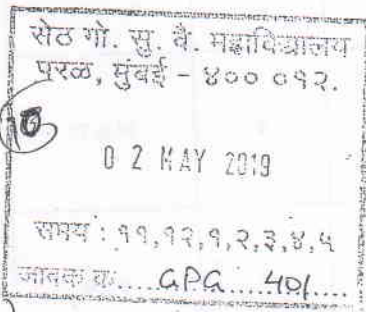 सेठ गो. सु. वै. महाविद्यालय
परळ, मुंबई - ४०० ०१२.
0 2 MAY 2019
समय : ११,१२,१,२,३,४,५
जावक क्र..... GPG.... 401....